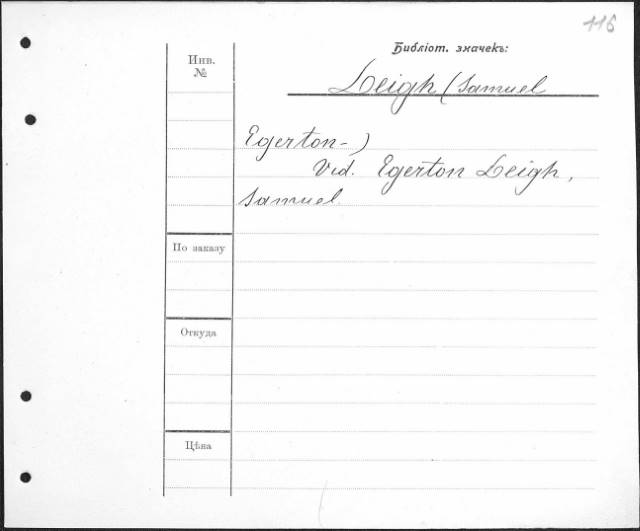 116
Библіот. значекъ:
Инв.
№
Leigh (Samuel
Egerton-)
Vid. Egerton Leigh,
Samuel.
По заказу
Откуда
Цѣна